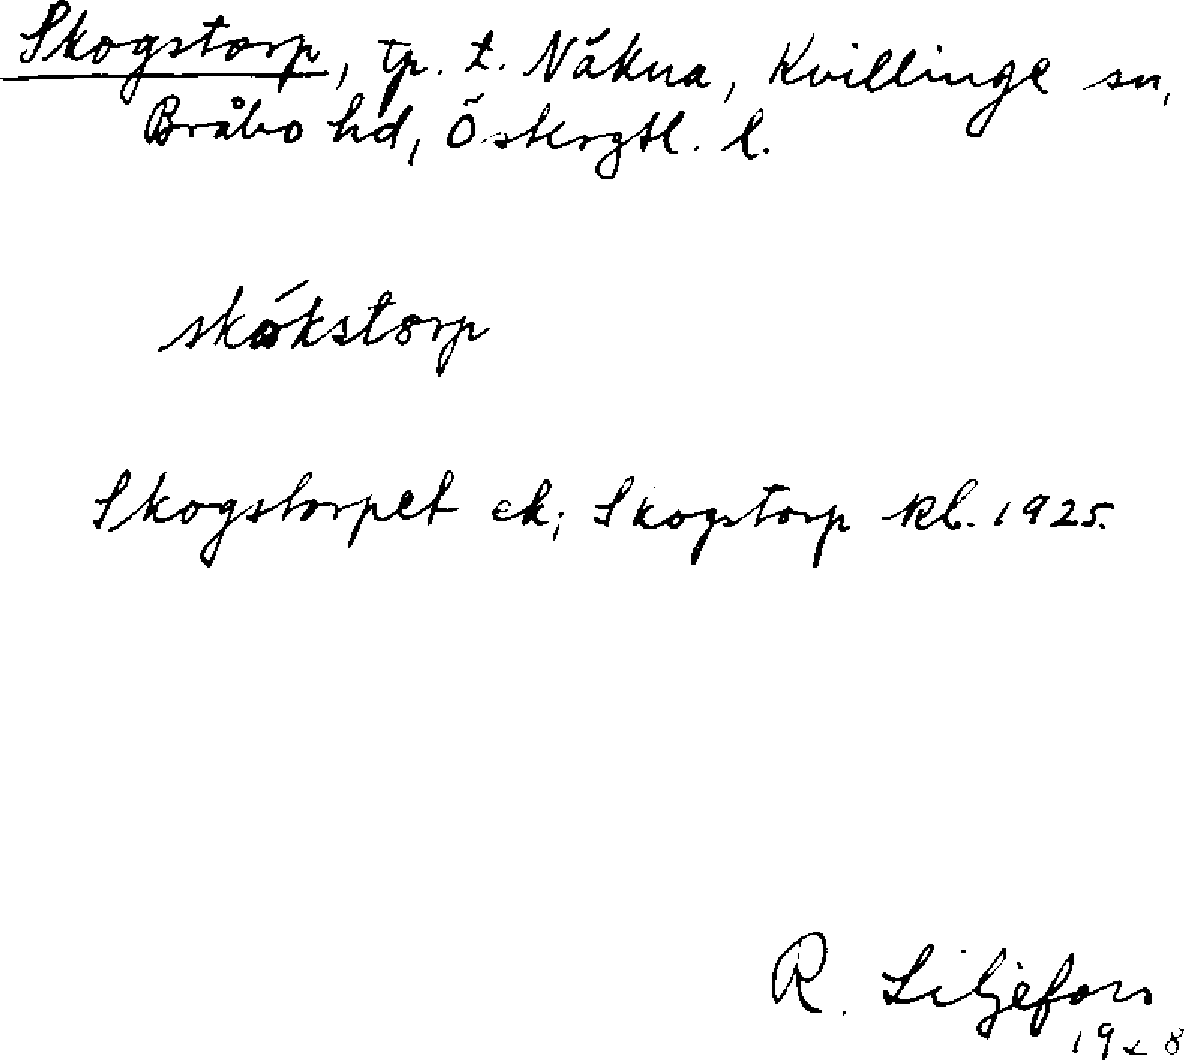 Skogstorp, tp. t. Näkna, Kvillinge sn,
Bråbo hd, Östergtl. l.
skókstorp
Skogstorpet ek; Skogstorp kb. 1925.
R. Liljefors
1928